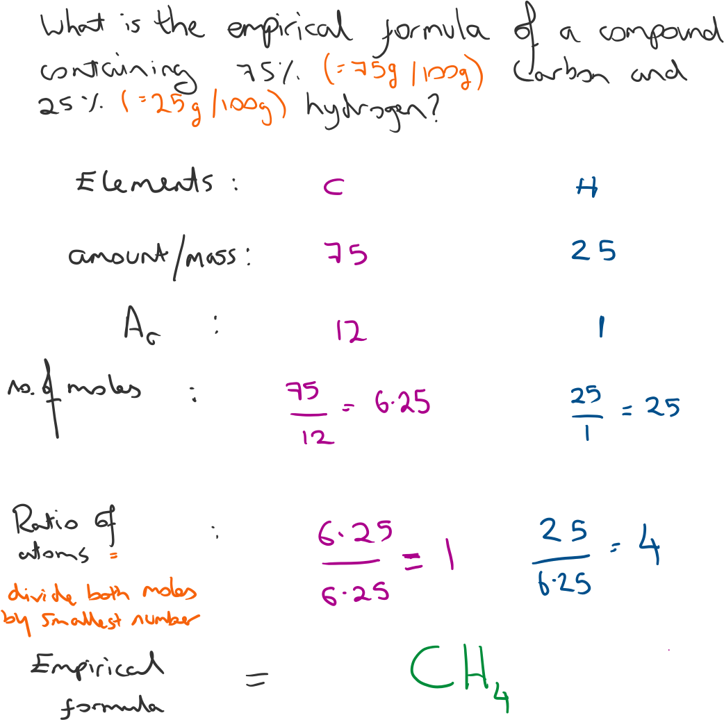 What is the empirical formula of a compound
containing 75% (=75g/100g) Carbon and
25% (=25g/100g) hydrogen?
Elements: C H
amount/mass: 75 25
Ar : 12 1
no. of moles : 75/12 = 6.25 25/1 = 25
Ratio of atoms = : 6.25/6.25 = 1 25/6.25 = 4
divide both moles
by smallest number
Empirical formula = CH₄